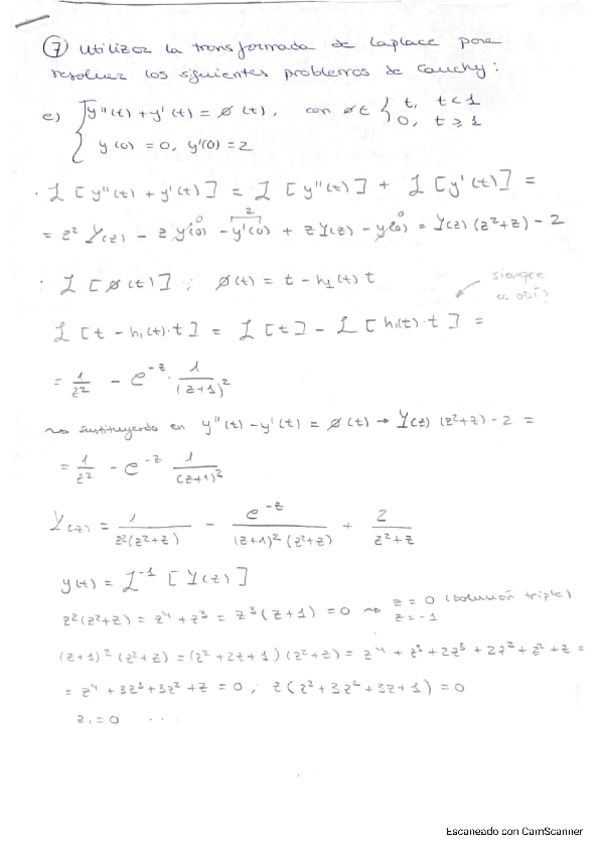 ⑦ Utilizar la transformada de Laplace para
resolver los siguientes problemas de Cauchy:
e) { y''(t) + y'(t) = ∅(t), con ∅t { t, t < 1
0, t ≥ 1
y(0) = 0, y'(0) = 2
· L[y''(t) + y'(t)] = L[y''(t)] + L[y'(t)] =
= z² Y(z) - z y(0) - y'(0) + z Y(z) - y(0) = Y(z) (z²+z) - 2
0 2 0
· L[∅(t)] ; ∅(t) = t - h₁(t) t
siempre
es así?
L[t - h₁(t)·t] = L[t] - L[h₁(t)·t] =
= 1/z² - e^-z · 1/(z+1)²
~> sustituyendo en y''(t) - y'(t) = ∅(t) → Y(z) (z²+z) - 2 =
= 1/z² - e^-z 1/(z+1)²
Y(z) = 1/z²(z²+z) - e^-z/(z+1)²(z²+z) + 2/z²+z
y(t) = L⁻¹ [Y(z)]
z²(z²+z) = z⁴ + z³ = z³(z+1) = 0 ~> z = 0 (solución triple)
z = -1
(z+1)²(z²+z) = (z²+2z+1)(z²+z) = z⁴ + z³ + 2z³ + 2z² + z² + z =
= z⁴ + 3z³ + 3z² + z = 0 ; z(z³ + 3z² + 3z + 1) = 0
z₁ = 0 ...
Escaneado con CamScanner